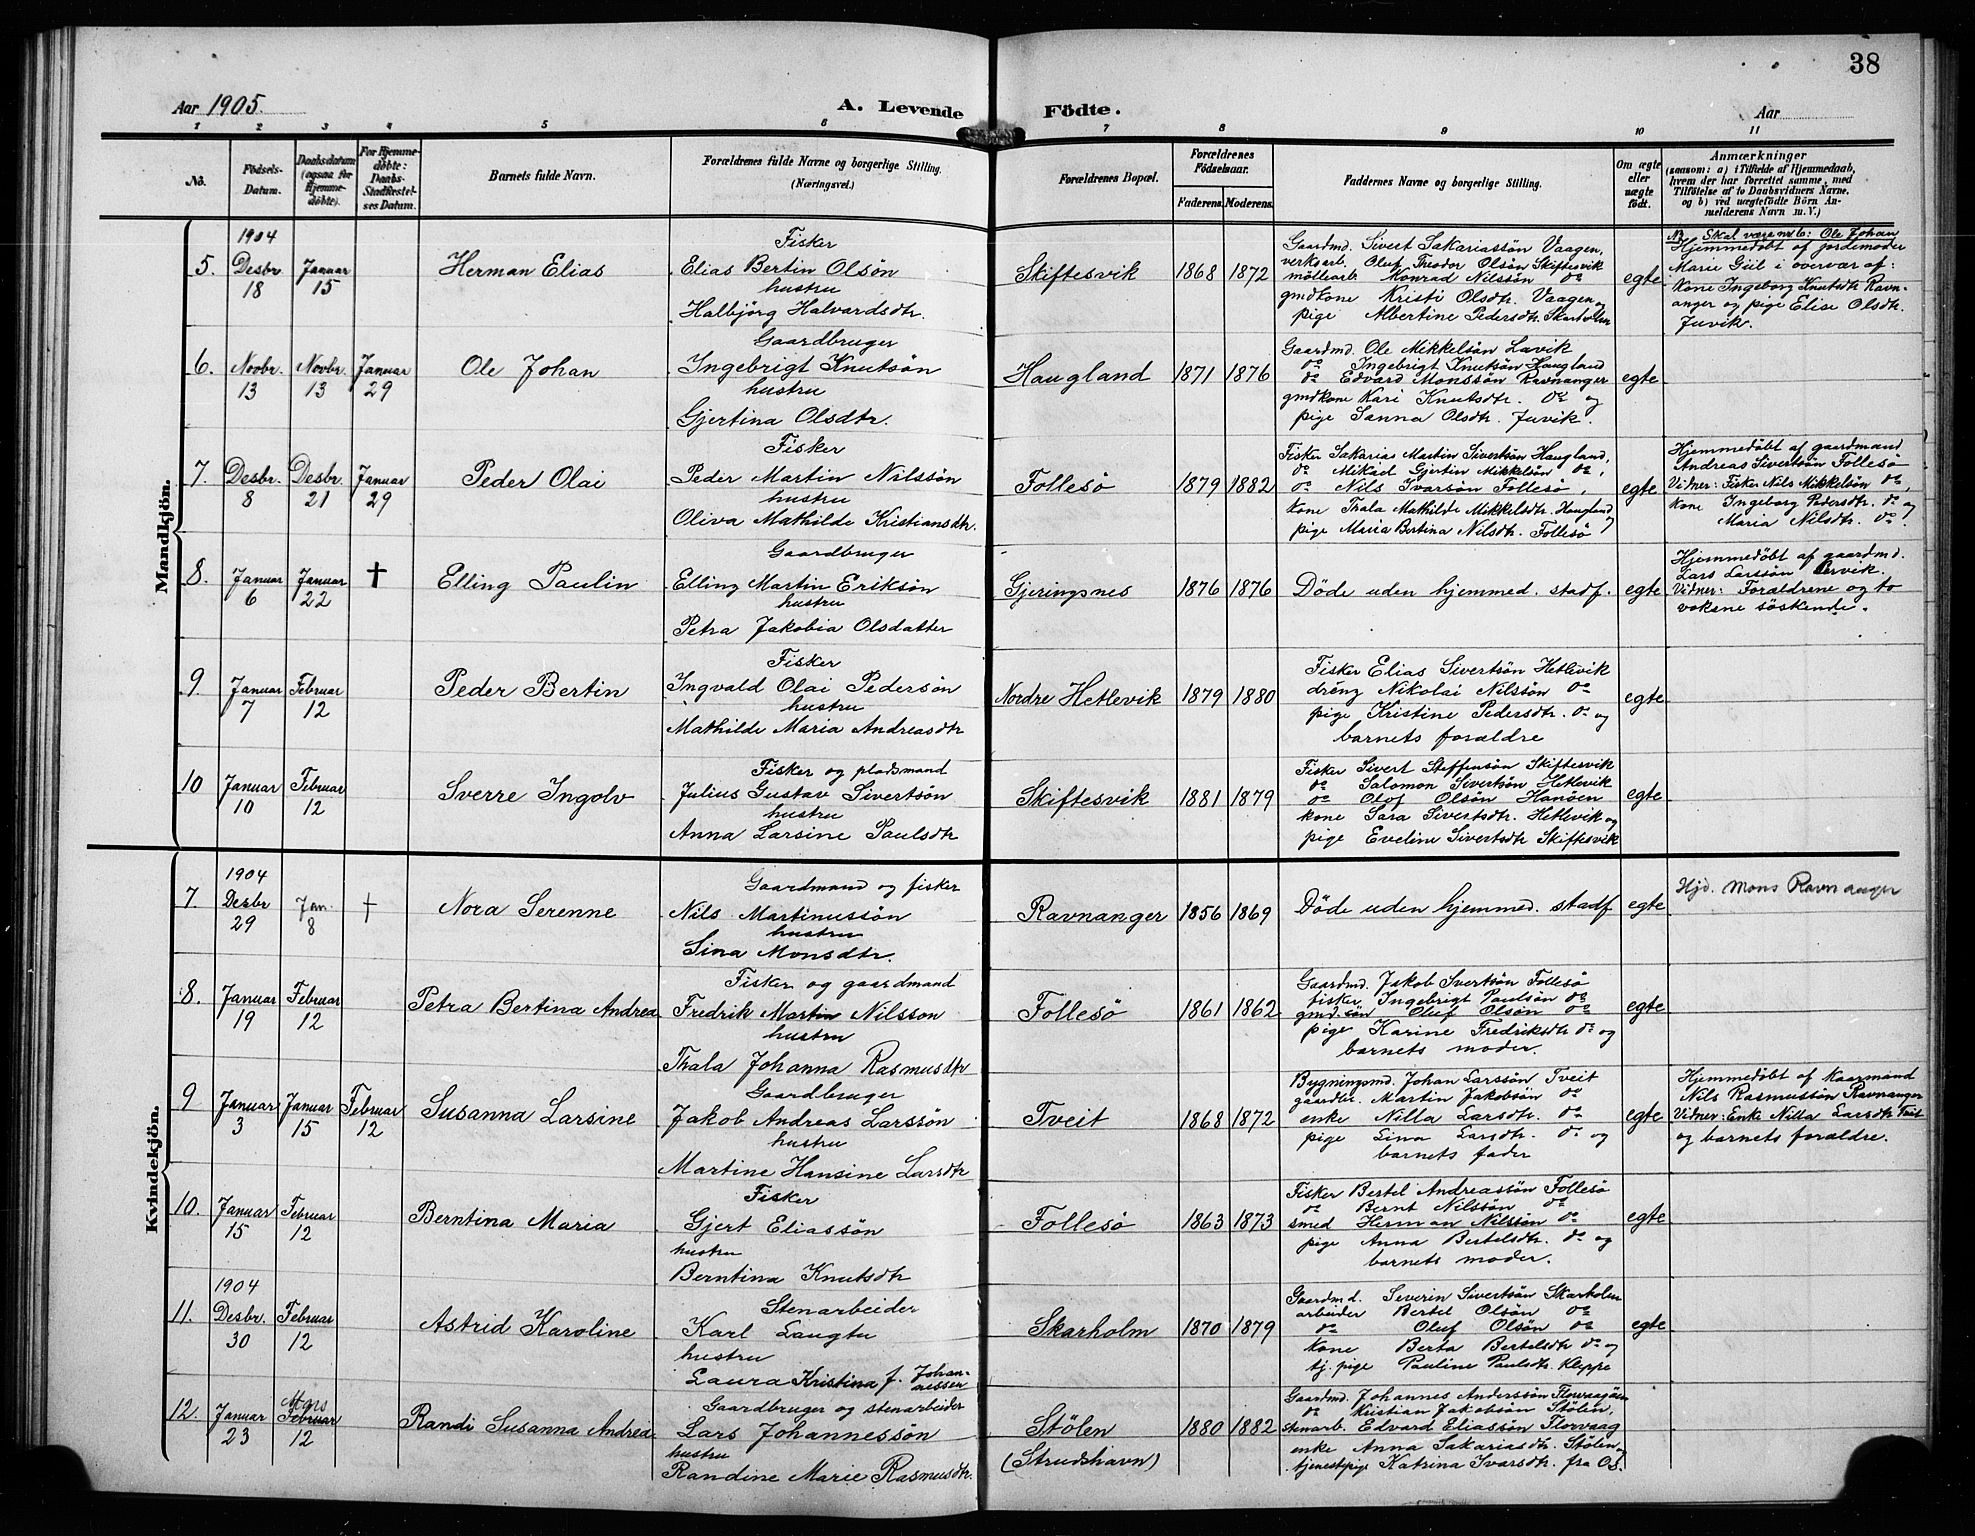 38
Aar 1905. A. Levende Födte. Aar
1 2 3 4 5 6 7 8 9 10 11
No. Födsels-Datum. Daabsdatum (ogsaa for Hjemmedöbte). For Hjemmedöbte: Daabs-Stadfæstelses Datum. Barnets fulde Navn. Forældrenes fulde Navne og borgerlige Stilling. (Næringsvei.) Forældrenes Bopæl. Forældrenes Födselsaar. Faderens. Moderens. Faddernes Navne og borgerlige Stilling. Om ægte eller uægte födt. Anmærkninger (saasom: a) i Tilfælde af Hjemmedaab, hvem der har forrettet samme, med Tilföielse af to Daabsvidners Navne, og b) ved uægtefödte Börn Anmelderens Navn m. V.)
Mandkjön.
5. 1904 Desbr 18 Januar 15 Herman Elias
Fisker
Elias Bertin Olsön
hustru
Halbjörg Halvardsdtr.
Skiftesvik 1868 1872
Gaardmd. Sivert Sakariassön Vaagen,
verksarb. Oluf Theodor Olsön Skiftesvik
möllearb. Konrad Nilssön do
gmdkone Kristi Olsdtr. Vaagen og
pige Albertine Pedersdtr. Skarholm
egte
NB Skal være nr 6: Ole Johan
Hjemmedöbt af jordemoder
Marie Giil i overvær af:
Kone Ingeborg Knutsdtr Ravn-
anger og pige Elise Olsdtr.
Juvik.
6. Novbr. 13 Novbr. 13 Januar 29 Ole Johan
Gaardbruger
Ingebrigt Knutsön
hustru
Gjertina Olsdtr.
Haugland 1871 1876
Gaardmd. Ole Mikkelsön Lavik
do Ingebrigt Knutsön Haugland
do Edvard Monssön Ravnanger
gmdkone Kari Knutsdtr. do og
pige Sanna Olsdtr. Juvik.
egte
7. Desbr. 8 Desbr. 21 Januar 29 Peder Olai
Fisker
Peder Martin Nilssön
hustru
Oliva Mathilde Kristiansdtr.
Follesö 1879 1882
Fisker Sakarias Martin Sivertsön Haugland,
do Mikal Gjertin Mikkelsön do,
do Nils Ivarsön Follesö,
kone Thala Mathilde Mikkelsdtr. Haugland
pige Maria Bertina Nilsdtr. Follesö
egte
Hjemmedöbt af gaardmand
Andreas Sivertsön Follesö
Vidner: Fisker Nils Mikkelsön do,
kone Ingeborg Pedersdtr. do og
Maria Nilsdtr. do.
8. Januar 6 Januar 22 † Elling Paulin
Gaardbruger
Elling Martin Eriksön
hustru
Petra Jakobia Olsdatter
Gjeringsnes 1876 1876 Döde uden hjemmed. stadf. egte
Hjemmedöbt af gaardmd.
Lars Larssön
Vidner: Forældrene og to
voksne söskende.
9. Januar 7 Februar 12 Peder Bertin
Fisker
Ingvald Olai Pedersön
hustru
Mathilde Maria Andreasdtr
Nordre Hetlevik 1879 1880
Fisker Elias Sivertsön Hetlevik
dreng Nikolai Nilssön do
pige Kristine Pedersdtr. do og
barnets forældre
egte
10 Januar 10 Februar 12 Sverre Ingolv
Fisker og pladsmand
Julius Gustav Sivertsön
hustru
Anna Larsine Paulsdtr
Skiftesvik 1881 1879
Fisker Sivert Steffensön Skiftesvik
do Salomon Sivertsön Hetlevik
do Olof Olsön Hanöen
kone Sara Sivertsdtr. Hetlevik og
pige Eveline Sivertsdtr Skiftesvik
egte
Kvindekjön.
7 1904 Desbr 29 Jan. 8 † Nora Serenne
Gaardmand og fisker
Nils Martinussön
hustru
Sina Monsdtr.
Ravnanger 1856 1869 Döde uden hjemmed. stadf egte
Hjd. Mons Ravnanger
8. Januar 19 Februar 12 Petra Bertina Andrea
Fisker og gaardmand
Fredrik Martin Nilsson
hustru
Thala Johanna Rasmusdtr
Follesö 1861 1862
Gaardmd. Jakob Sivertsön Follesö
fisker Ingebrigt Paulsön do
gmd.sön Oluf Olsön do
pige Karine Fredriksdtr do og
barnets moder.
egte
9 Januar 3 Januar 15 Februar 12 Susanna Larsine
Gaardbruger
Jakob Andreas Larssön
hustru
Martine Hansine Larsdtr
Tveit 1868 1872
Bygningsmd. Johan Larssön Tveit
gaardbr. Martin Jakobsön do
enke Nilla Larsdtr. do
pige Lina Larsdtr. do og
barnets fader
egte
Hjemmedöbt af Kaarmand
Nils Rasmussön Ravnanger
Vidner: Enke Nilla Larsdtr Tveit
og barnets forældre.
10. Januar 15 Februar 12 Berntina Maria
Fisker
Gjert Eliassön
hustru
Berntina Knutsdtr
Follesö 1863 1873
Fisker Bertel Andreassön Follesö
do Bernt Nilssön do
smed Herman Nilssön do
pige Anna Bertelsdtr. do og
barnets moder.
egte
11. 1904 Desbr. 30 Februar 12 Astrid Karoline
Stenarbeider
Karl Laugtu
hustru
Laura Kristina f. Johan-
nessen
Skarholm 1870 1879
Gaardmd. Severin Sivertsön Skarholm
arbeider Bertel Olsön do
do Oluf Olsön do
kone Berta Bertelsdtr do og
tj.pige Pauline Paulsdtr. Kleppe
egte
12. Januar 23 Februar Mars 12 Randi Susanna Andrea
Gaardbruger og stenarbeider
Lars Johannessön
hustru
Randine Marie Rasmusdtr.
Stölen
(Strudshavn)
1880 1882
Gaardmd. Johannes Anderssön
do Kristian Jakobsön Stölen,
stenarb. Edvard Eliassön Florvaag
enke Anna Sakariasdtr. Stölen og
tjenestpige Katrina Ivarsdtr. fra Os.